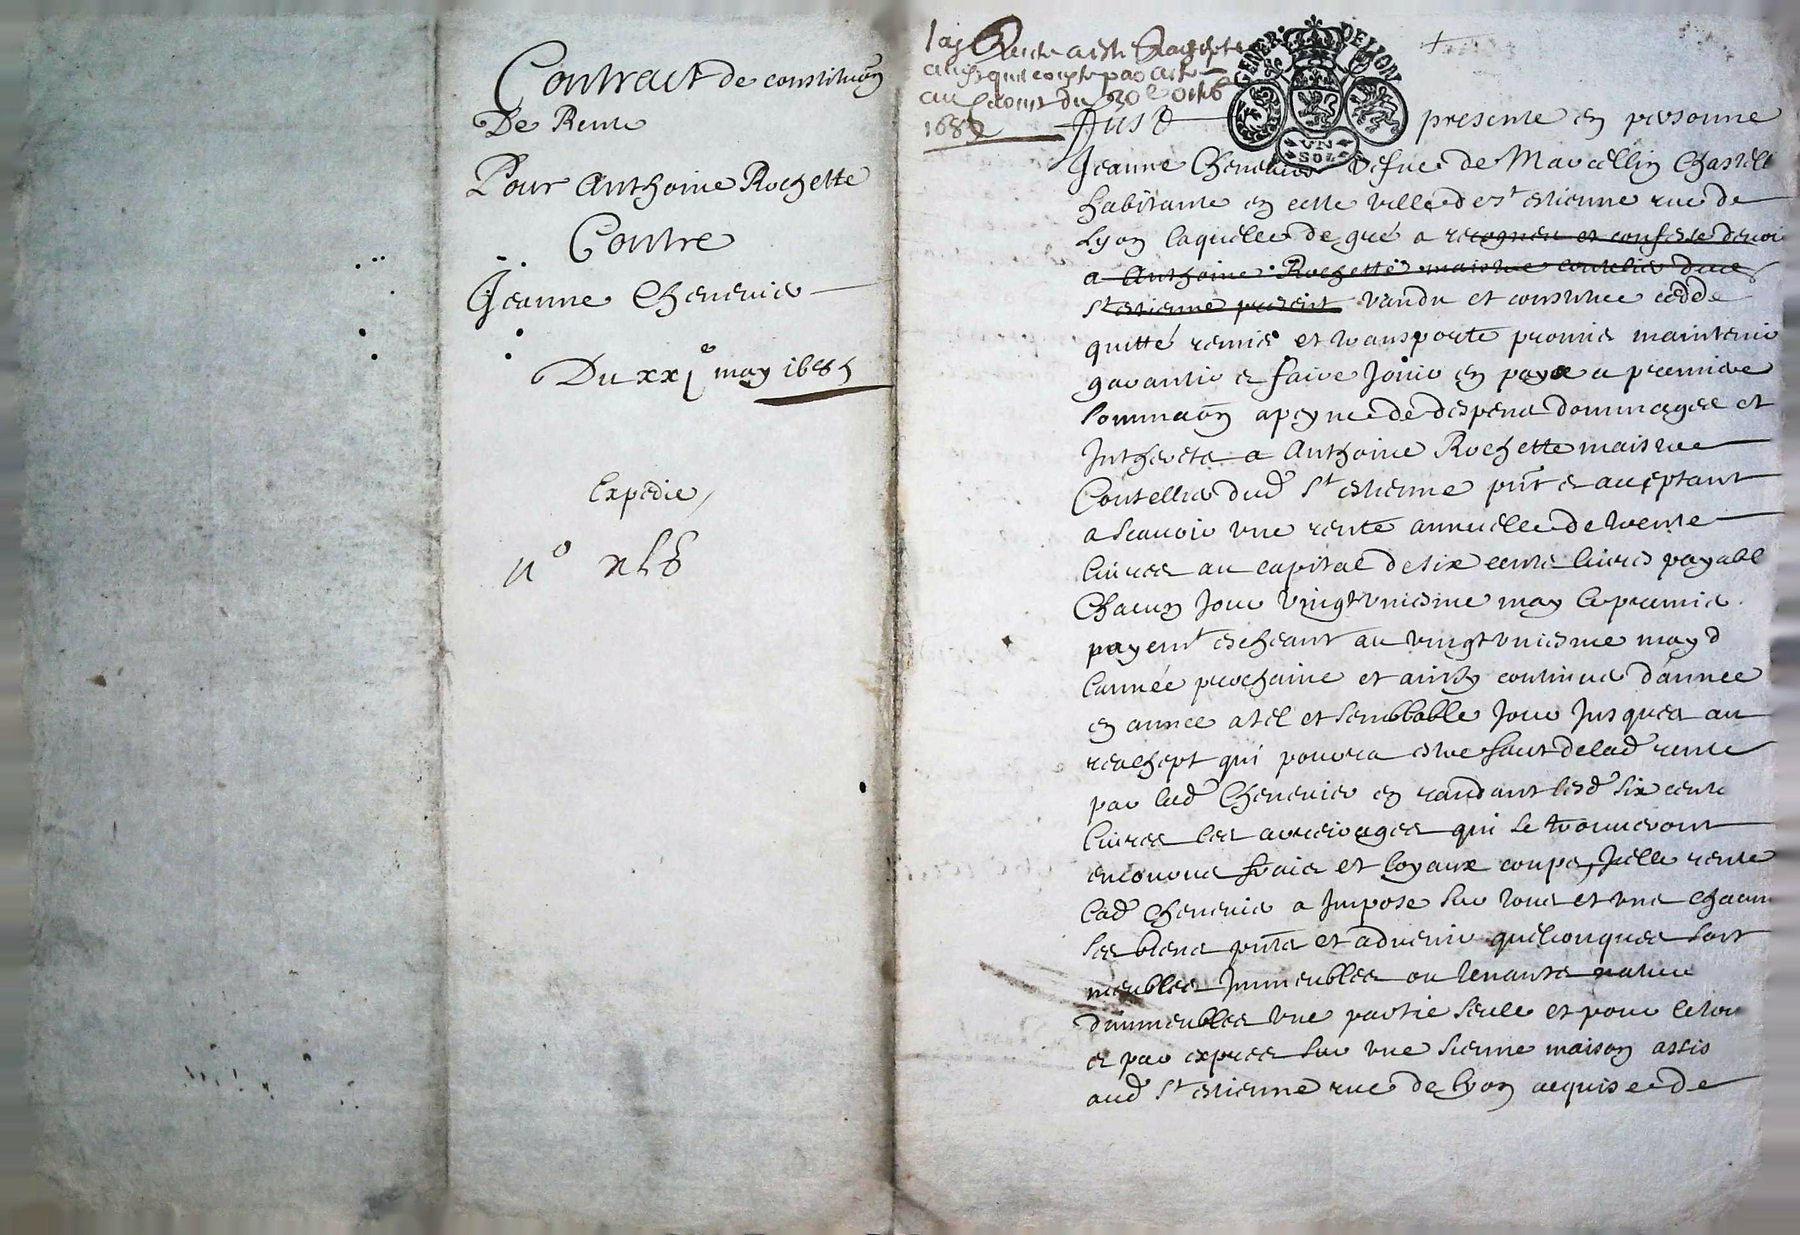 Contract de constituōn
De Rente
Pour Anthoine Rochette
Contre
Jeanne Chenevier
Du xxjᵉ may 1685
Expedie
n°
au 20ᵉ
168
GENER. DE LION
VN
SOL
Fust presente en personne
Jeanne Chenevier vefue de Marcellin Chastell
habitante en cette ville de St estienne rue de
Lyon laquelle de gré a recogneu et confessé devoir
a Anthoine Rochette maistre coutellier dud
St estienne present vandu et constitue cedde
quitté remis et transporte promis maintenir
garantir et faire Jouir en paye a premiere
sommaōn a peyne de despens dommages et
Intherets a Anthoine Rochette maistre
Coutellier dud St estienne pnt et acceptant
a scauoir vne rente annuelle de trente
liures au capital de six cents liures payabl
Chacun Jour vingtvniesme may le premier
payemt escheant au vingtvniesme may d
l'année prochaine et ainsy continuer d'annee
en annee a tel et semblable Jour Jusques au
reachept qui pourra estre faict de lad rente
par lad Chenevier en randant lesd six cents
liures les arreirages qui se trouueront
encourus frais et loyaux coups, Jcelle rente
lad Chenevier a Impose sur tous et vns chacun
ses biens pnts et aduenir quelconques soit
meubles Jmmeubles ou tenants nature
d'immeubles vne partie seule et pour le tou
et par expres sur vne sienne maison assis
aud St estienne rue de Lyon acquise de